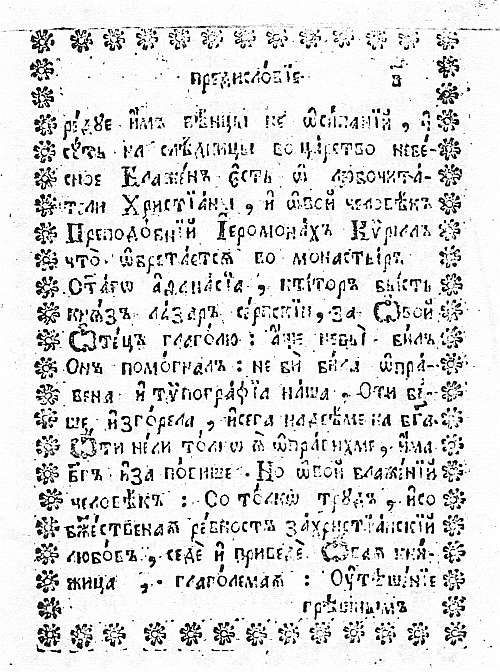 предисло́вїе в҃
ре́дꙋе и҆́мъ вѣнцы̀ не ѡ҆си́панїй , и҆
сꙋ́ть на слѣ́дницы во ца́рство небе́-
сное Блаже́н є҆́сть ѿ любочита́-
тели Христїа́ны , и҆ ѡ҆вой человѣ́къ
Преподо́бнїй І҆еромона́хъ Кѷри́лъ
что̀ ѡ҆брета́етсѧ во монасты́ръ
Ѻт҃агѡ а҆ѳана́сїа , кти́торъ бы́сть
кнѧ́зъ ла́заръ се́рпскїи , за Ѡ҆вой
Ѻте́цъ глаго́лю : а҆́ще не бы̀ би́лъ
Онъ помо́гналъ : не бѝ би́ла ѡ҆пра́-
вена и҆ тѷпогра́фїа на́ша . Оти бе́-
ше и҆зго́рела , и҆сега надѣ́еме на бг҃а
Ѻти не́ли то́лкѡ ѧ҆̀ ѡ҆пра́вихме , и҆́ма
Бг҃ъ и҆ за по́више . Но ѡ҆вой блаже́нїй
человѣ́къ : Со то́лкѡ трꙋ́дъ , и҆со
бж҃е́ственаѧ ре́вность за́христїа́нскїй
любо́въ , седѐ и҆ приберѐ . Ѡ҆ваѧ кни́-
жица , глаго́лемаѧ : Оу҆тѣше́нїе
грѣ́шнымъ